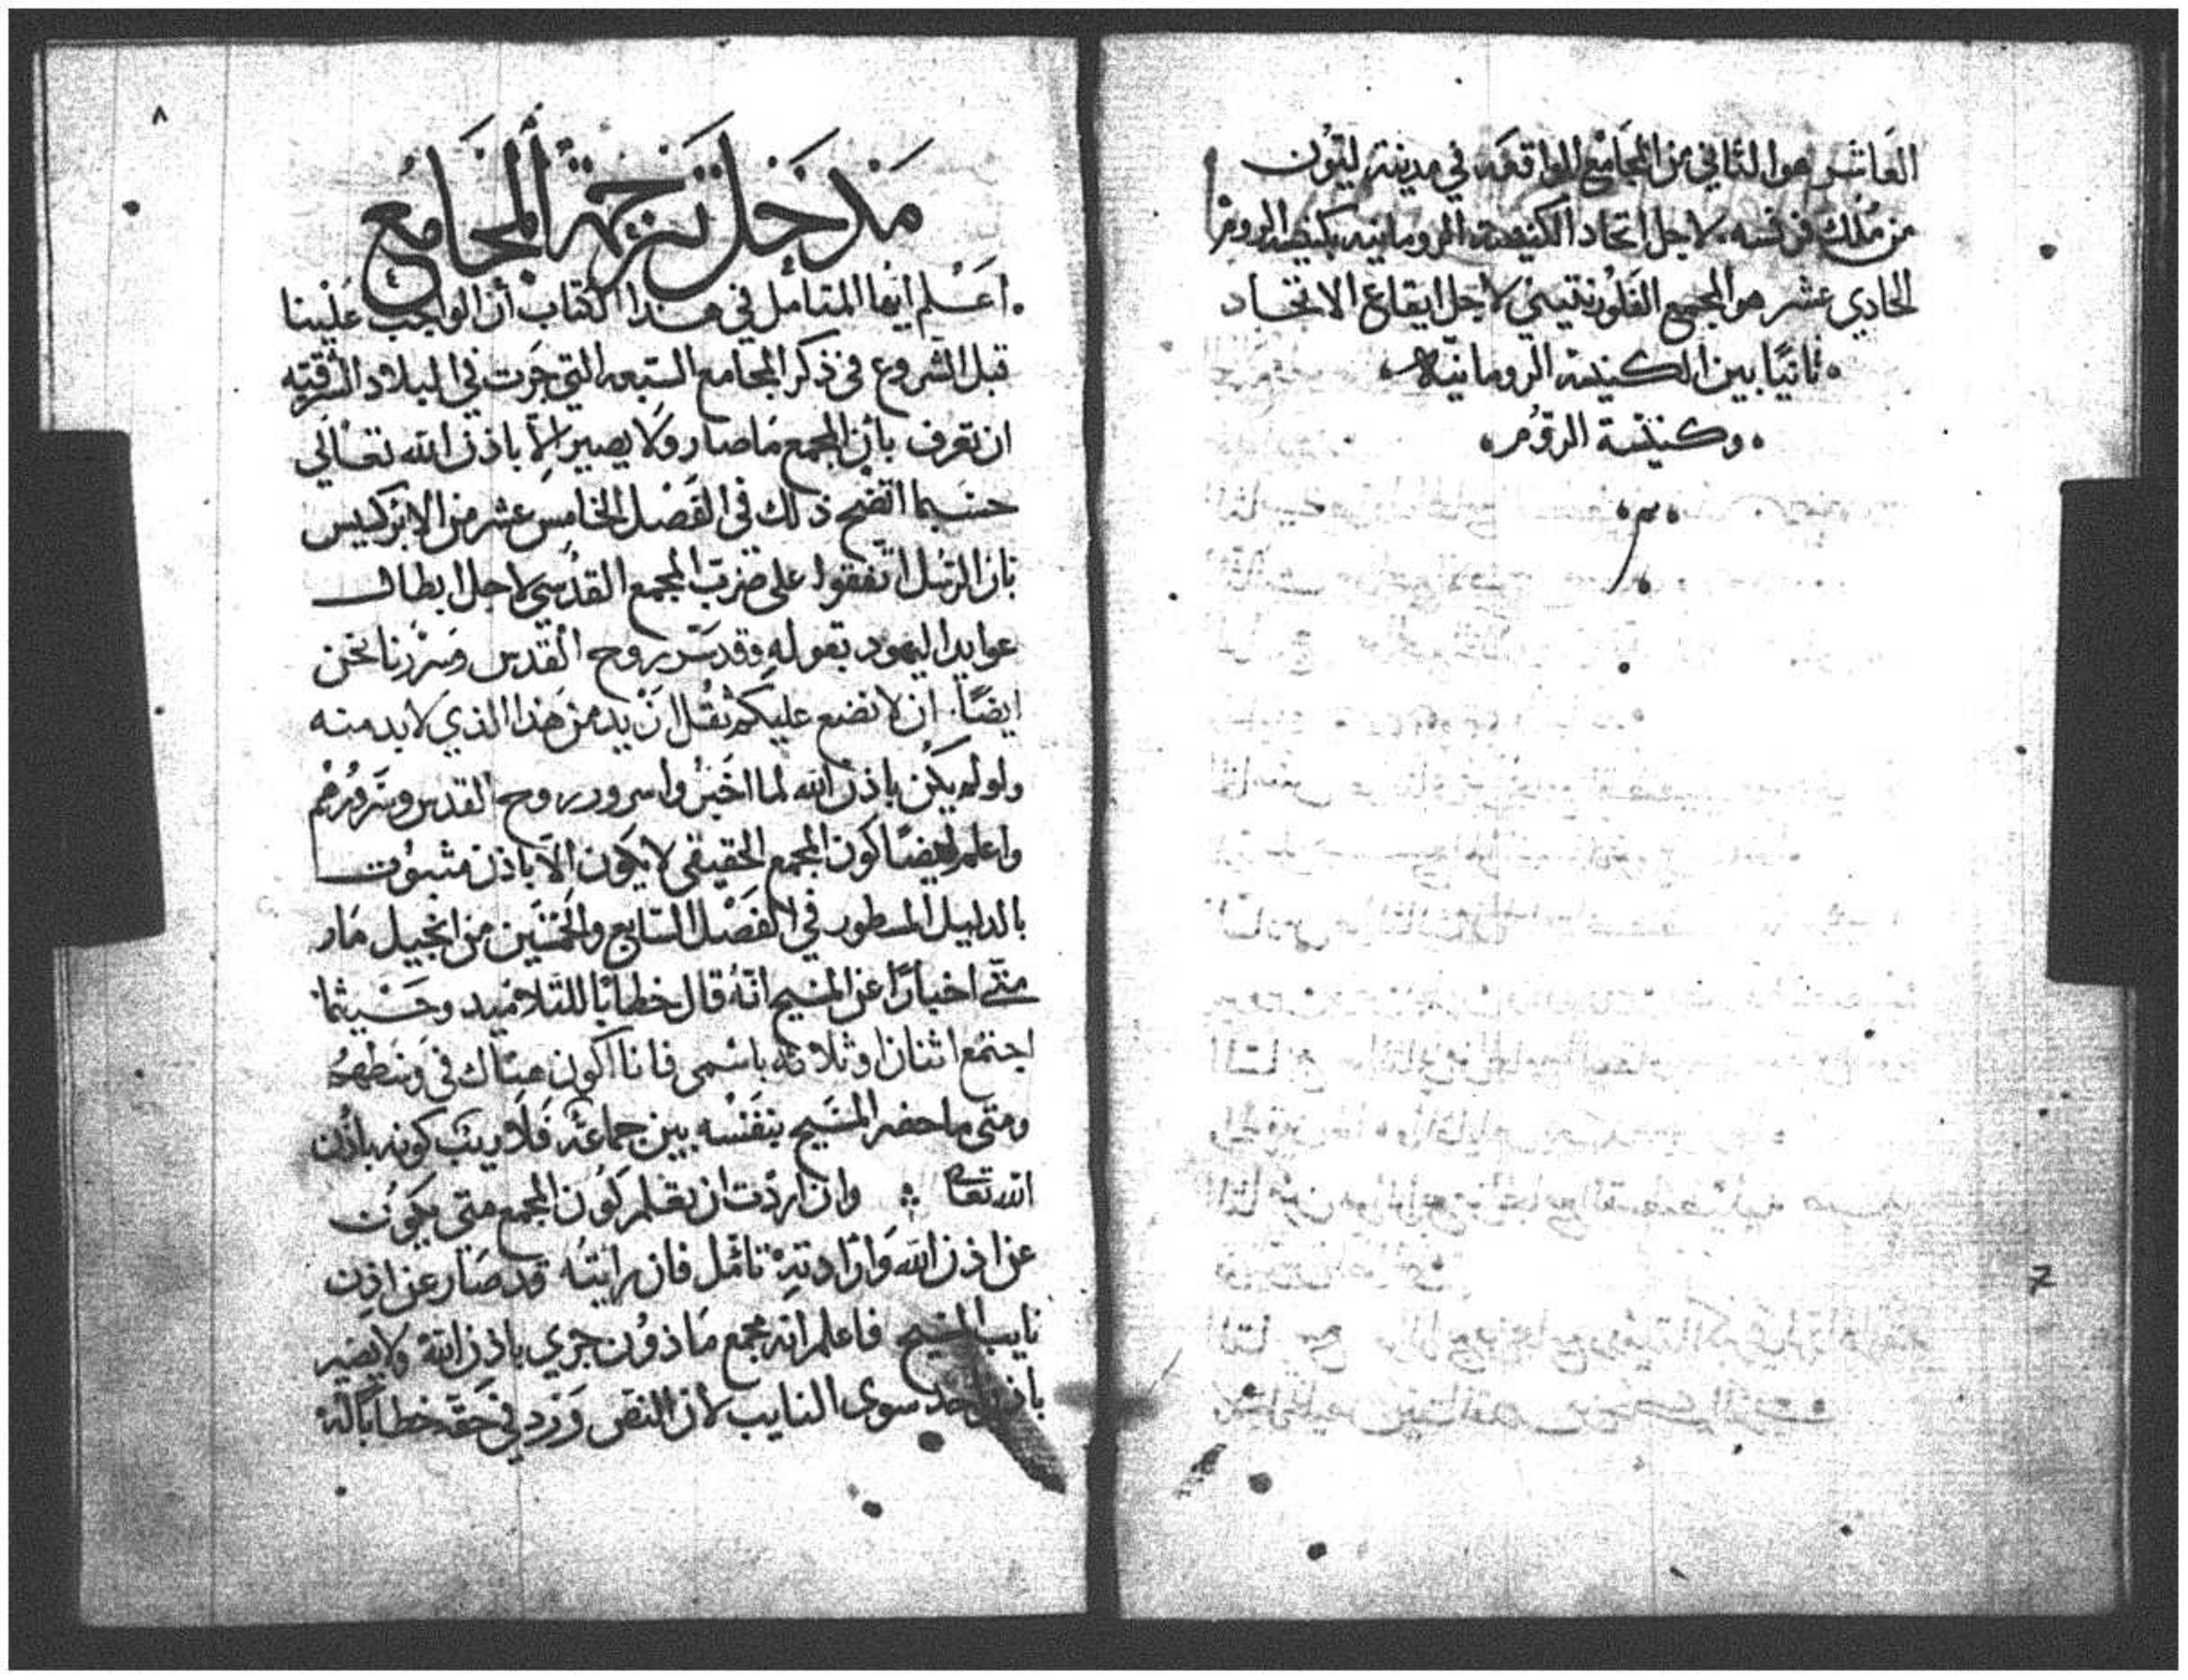 العاشر هوا الثاني من المجامع الواقعه في مدينة ليون
من ملك فرنسه لاجل اتحاد الكنيسة الرومانيه بكنيسة الروم
الحادي عشر هو المجمع الفلورنتيني لاجل ايقاع الاتحاد
ثانيًا بين الكنيسة الرومانيّه
وكنيسة الروُم
م
٨
مَدخَل تَرجَمة المَجَامع
اَعْلم ايها المتامل في هذا الكتاب أن الواجب عَلَينا
قبل الشروع في ذكر المجامع السَبعه التي جَرت في البلاد الشرقيه
ان نعرف بأن المجمع مَا صار ولَا يصير إلاّ باذن الله تعالي
حسبما اتضح ذلك في الفَصل الخامِس عشر من الابركسيس
بان الرسُل اتفقوا على ضرب المجمع القدُسي لاجل ابطال
عوايد اليهود بقوله وقد سَرّ روح القدس وسررنا نحن
ايضًا ان لا نضع عليكم ثقُلا ازيد من هَذا الذي لا بد منه
ولو لم يكن باذن الله لما اخبروا سرور روح القدس وسَرورهم
واعلم ايضًا كون المجمع الحقيقي لا يكون الاّ باذن مثبوُت
بالدليل المسطور في الفَصْل السَابع والخمسَين من انجيل مَار
متّي اخبارًا عن المسيح انهُ قال خطابًا للتلاميد وحَيثما
اجتمع اثنان او ثلاثه باسمى فانا اكون هناك في وسَطهم
ومتى ما حضر المسَيح بنفسْه بين جماعَة فلا ريبَ كونه باذن
الله تعا وان اردْت ان تعلم كَون المجمع متى يكون
عن اذن الله وَارادتهِ تامّل فان رايته قد صَار عن اذِن
نايب المسَيح فاعلم انه مجمع مَاذوُن جرى باذن الله ولا يصَير
باذن احد سوى النايب لان النص وَرد في حَقه خطابًا له